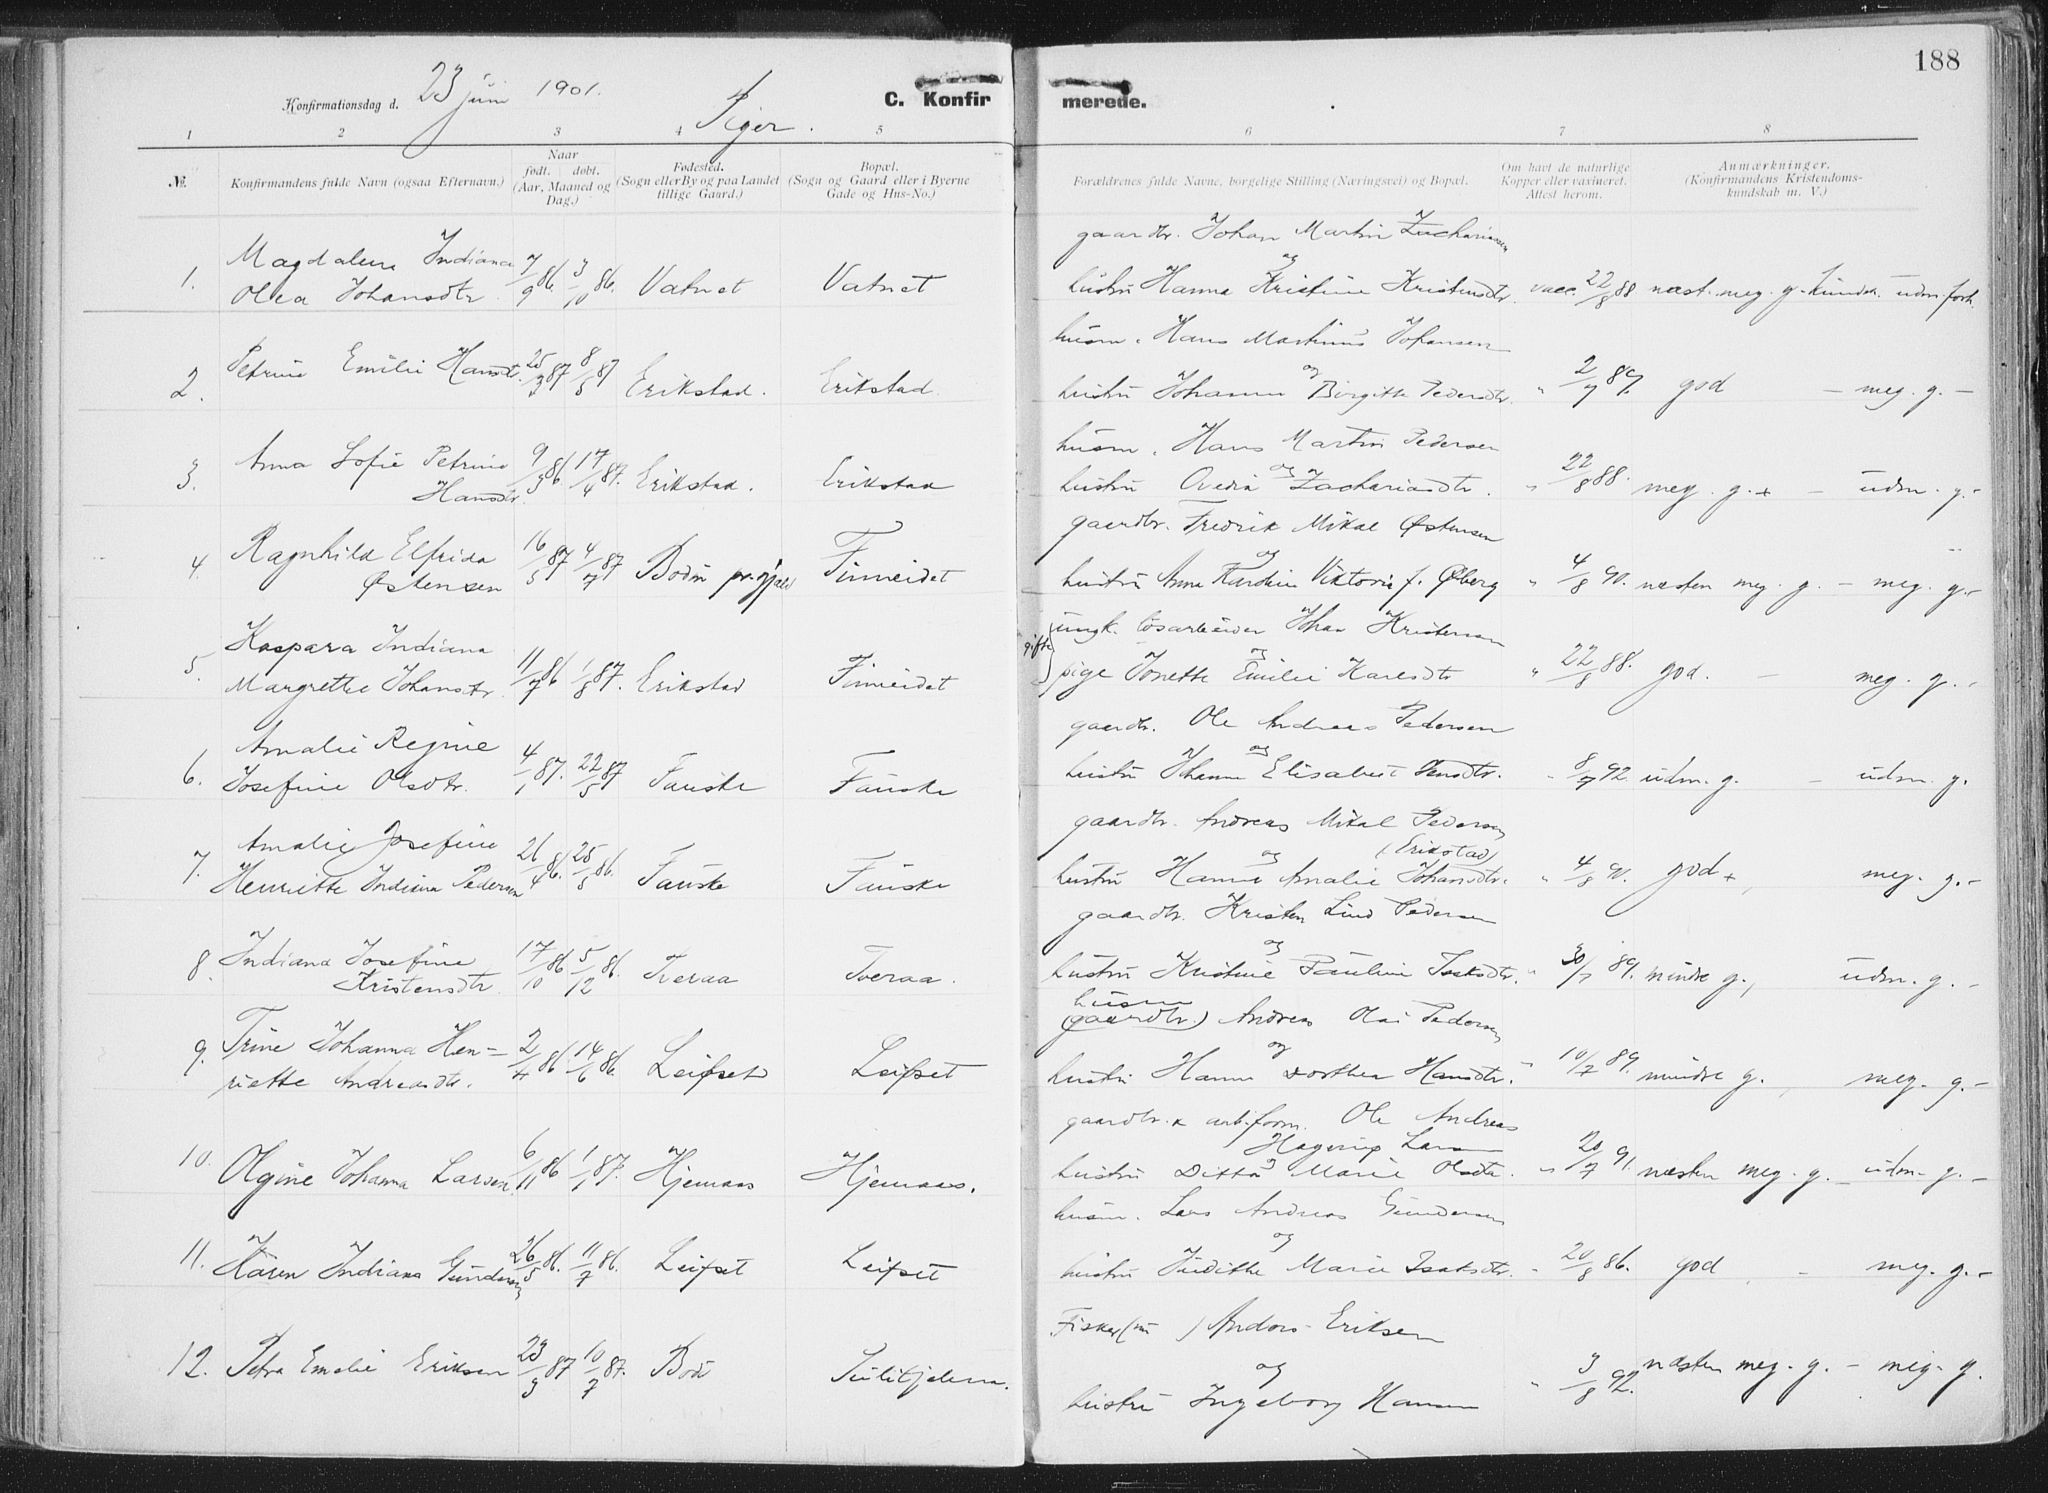 188
Konfirmationsdag d. 23 juni 1901. Piger. C. Konfirmerede.
1 2 3 4 5 6 7 8
№. Konfirmandens fulde Navn (ogsaa Efternavn.) Naar født. døbt. (Aar, Maaned og Dag.) Fødested. (Sogn eller By og paa Landet tillige Gaard.) Bopæl. (Sogn og Gaard eller i Byerne Gade og Hus-No.) Forældrenes fulde Navne, borgelige Stilling (Næringsvei) og Bopæl. Om havt de naturlige Kopper eller vaxineret. Attest herom. Anmærkninger. (Konfirmandens Kristendomskundskab m. V.)
gaardbr. Johan Martin Zachariassen
1. Magdalena Indiana
Olea Johansdtr. 7/9 86. 3/10 86. Vatnet Vatnet og hustru Hanna Kristine Kristensdtr. vacc. 22/8 88 næst. meg. g. kundsk. udm. forh.
husm. Hans Martinus Johansen
2. Petrine Emilie Hansdtr. 25/3 87 8/5 87 Erikstad. Erikstad. og hustru Johanna Birgitte Pedersdtr. " 2/7 89. god — meg. g. —
husm. Hans Martin Pedersen
3. Anna Sofie Petrine
Hansdtr. 9/3 86. 17/4 87. Erikstad. Erikstad og hustru Ovedia Zachariasdtr. " 22/8 88. meg. g. + — udm. g. —
gaardbr. Fredrik Mikal Østensen
4. Ragnhild Elfrida
Østensen 16/5 87 4/7 87 Bodin pr.gjæld Finneidet og hustru Anna Karoline Viktoria f. Øberg " 4/8 90. næsten meg. g. — meg. g. —
gifte } ungk. løsarbeider Johan Kristensen
5. Kaspara Indiana
Margrethe Johansdtr. 11/7 86 1/8 87. Erikstad Finneidet og pige Jonette Emilie Karlsdtr " 22/8 88. god. — meg. g. —
gaardbr. Ole Andreas Pedersen
6. Amalie Regine
Josefine Olsdtr. 4/1 87. 22/5 87 Fauske Fauske og hustru Johanna Elisabet Hansdtr. " 8/7 92 udm. g. — udm. g.
gaardbr. Andreas Mikal Pedersen
(Erikstad)
7. Amalie Josefine
Henriette Indiana Pedersen 26/4 86. 25/5 86. Fauske Fauske og hustru Hanna Amalie Johansdtr. " 4/8 90. god +, meg. g. —
gaardbr. Kristen Lind Pedersen
8. Indiana Josefine
Kristensdtr 17/10 86 5/12 86. Tveraa Tveraa. og hustru Kristine Pauline Isaksdtr. " 30/7 89. mindre g., udm. g. —
husm (gaardbr.) Andreas Olai Pedersen
9. Trine Johanna Hen-
riette Andreasdtr. 2/4 86 14/6 86. Leifset Leifset og hustru Hanna Dorthea Hansdtr. " 10/7 89. mindre g., meg. g. —
gaardbr. & arb.form. Ole Andreas
Hagerup Larsen
10. Olgine Johanna Larsen 6/11 86 1/1 87. Hjemaas Hjemaas. og hustru Ditta Marie Olsdtr. " 20/7 91. næsten meg. g. — udm. g. —
husm. Lars Andreas Gundersen
11. Karen Indiana Gundersen 26/5 86. 11/7 86. Leifset Leifset og hustru Juditte Marie Isaksdtr. " 20/8 86. god, — meg. g. —
Fisker Anders Eriksen
12. Petra Emelie Eriksen 23/3 87 10/7 87. Bodø Sulitjelma. og hustru Ingeborg Hansen " 3/8 92. næsten meg. g. — meg. g.